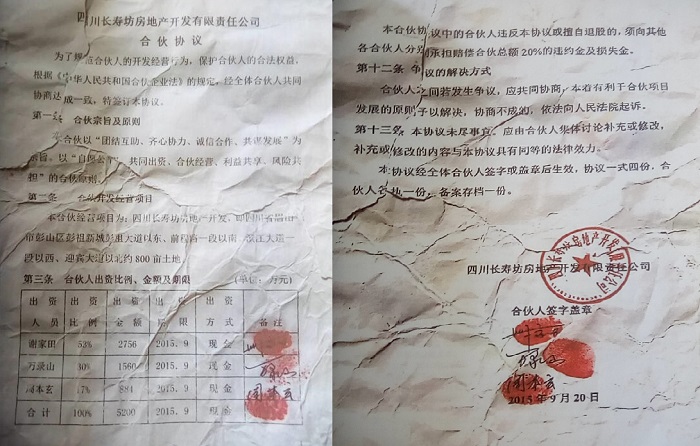 四川长寿坊房地产开发有限责任公司
合伙协议
为了规范合伙人的开发经营行为，保护合伙人的合法权益，
根据《中华人民共和国合伙企业法》的规定，经全体合伙人共同
协商达成一致，特签订本协议。
第一条 合伙宗旨及原则
合伙以“团结互助、齐心协力、诚信合作、共谋发展”为
宗旨。以“自愿公平、共同出资，合伙经营、利益共享，风险共
担”的合伙原则。
第二条 合伙开发经营项目
本合伙经营项目为：四川长寿坊房地产开发，即四川省眉山
市彭山区彭祖新城彭祖大道以东、前程路一段以南、滨江大道一
段以西、迎宾大道以北约 800 亩土地
第三条 合伙人出资比例、金额及期限 （单位：万元）
出资 出资 出资 出资 出资 备注
人员 比例 金额 期限 方式
谢家田 53% 2756 2015.9 现金
万录山 30% 1560 2015.9 现金
周本玄 17% 884 2015.9 现金 周本玄
合计 100% 5200 2015.9 现金
本合伙协议中的合伙人违反本协议或擅自退股的，须向其他
各合伙人分别承担赔偿合伙总额 20%的违约金及损失金。
第十二条 争议的解决方式
合伙人之间若发生争议，应共同协商，本着有利于合伙项目
发展的原则予以解决，协商不成的，依法向人民法院起诉。
第十三条 本协议未尽事宜，应由合伙人集体讨论补充或修改，
补充或修改的内容与本协议具有同等的法律效力。
本协议经全体合伙人签字或盖章后生效，协议一式四份，合
伙人各执一份，备案存档一份。
四川长寿坊房地产开发有限责任公司
合伙人签字盖章
周本玄
2015 年 9 月 20 日